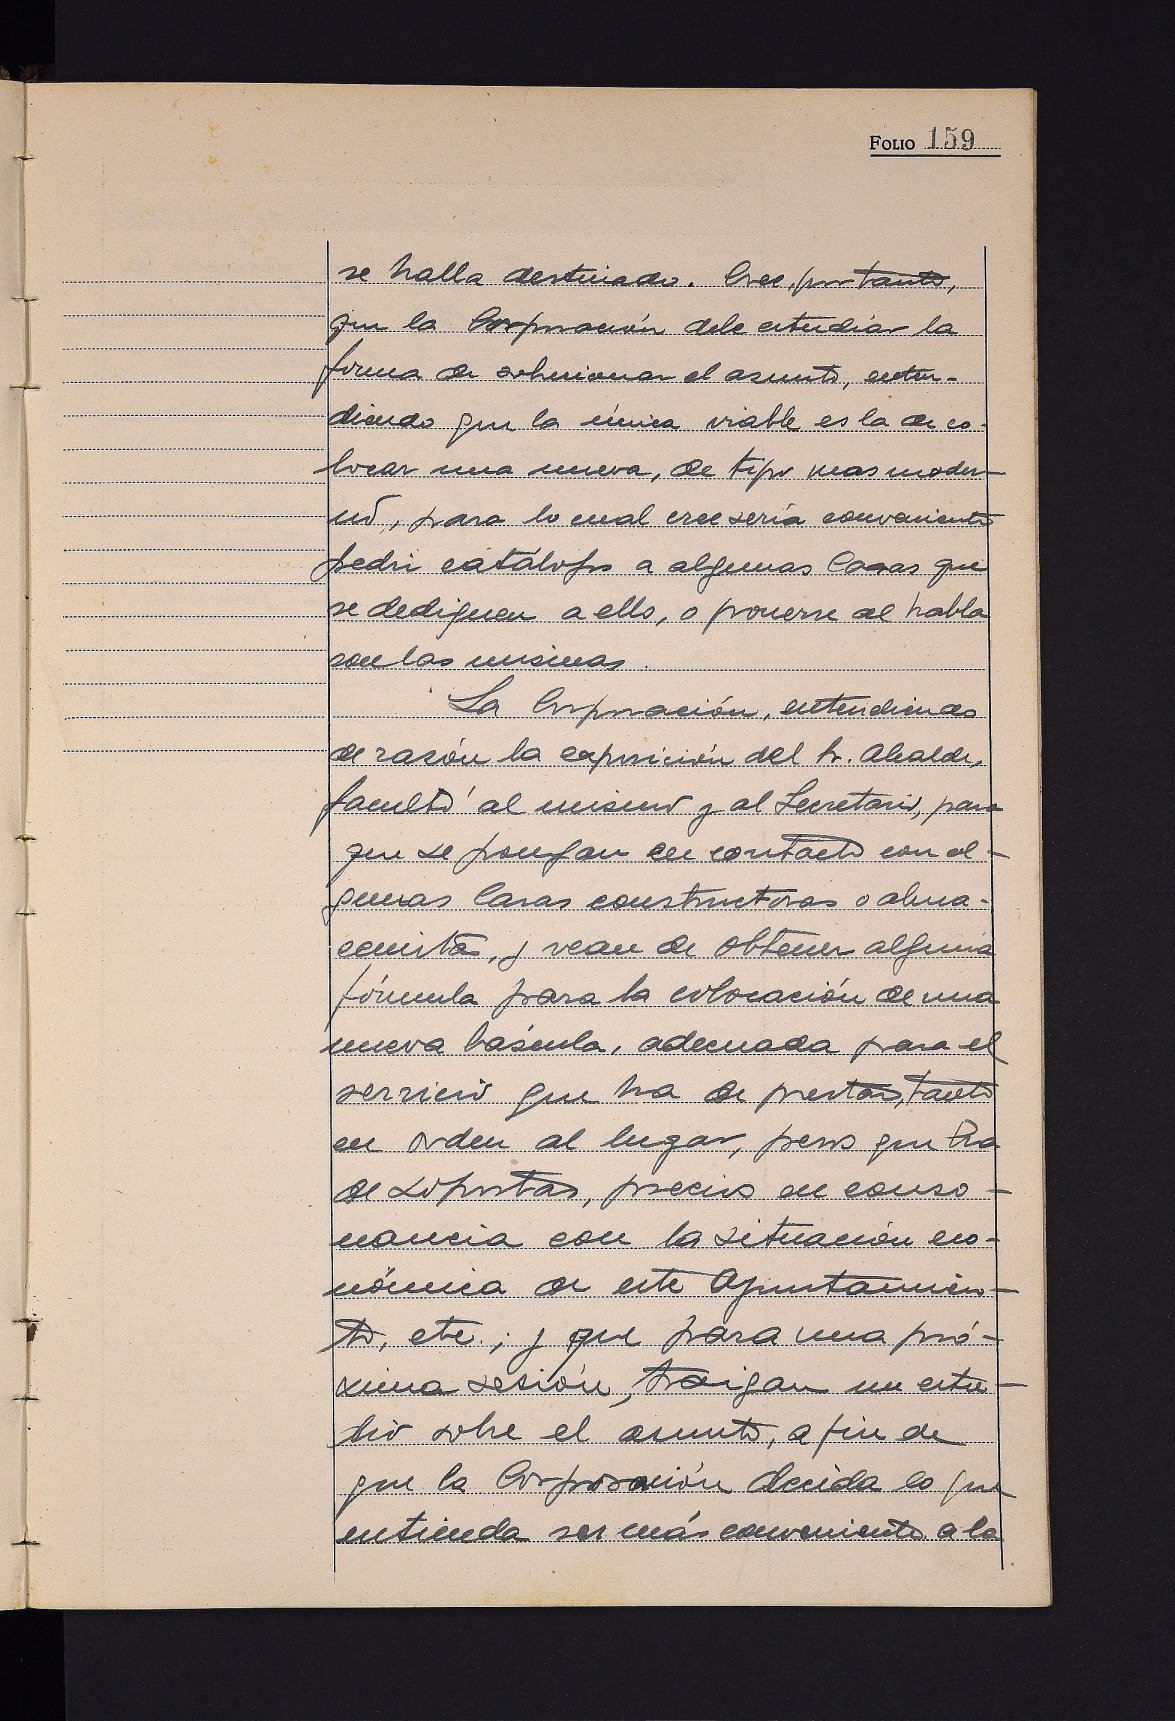 FOLIO 159
se halla destinado. Cree, por tanto,
que la Corporación debe estudiar la
forma de solucionar el asunto, enten-
diendo que la única viable es la de co-
locar una nueva, de tipo mas moder-
no, para lo cual cree sería conveniente
pedir catálogos a algunas Casas que
se dediquen a ello, o ponerse al habla
con las mismas.
La Corporación, entendiendo
de razón la exposición del Sr. Alcalde,
facultó al mismo y al Secretario, para
que se pongan en contacto con al-
gunas Casas constructoras o alma-
cenista, y vean de obtener alguna
fórmula para la colocación de una
nueva báscula, adecuada para el
servicio que ha de prestar, tanto
en orden al lugar, pesos que ha
de soportar, precios en conso-
nancia con la situación eco-
nómica de este Ayuntamien-
to, etc.; y que para una pró-
xima sesión, traigan un estu-
dio sobre el asunto, a fin de
que la Corporación decida lo que
entienda ser más conveniente a la